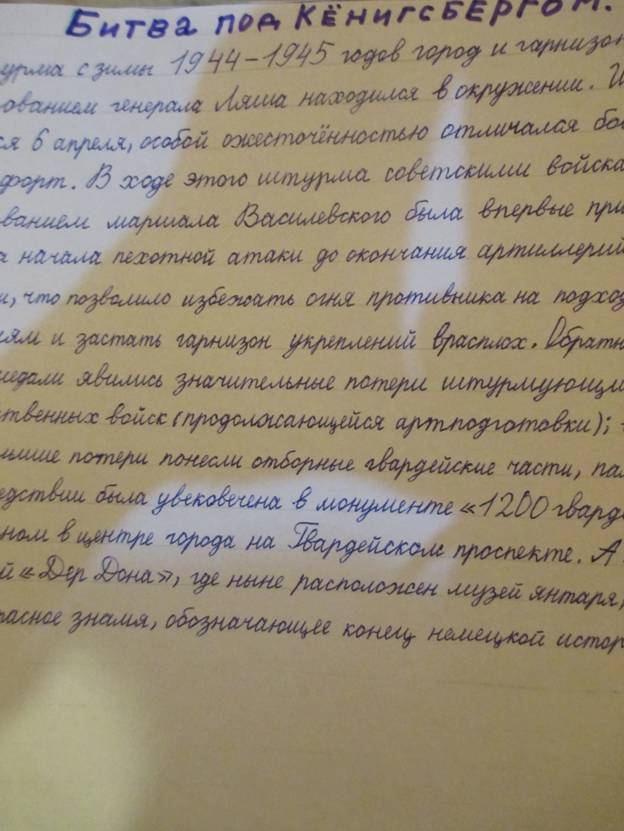 Битва под Кёнигсбергом.
урма с зимы 1944-1945 годов город и гарнизон
ованием генерала Ляша находился в окружении. Ш
ся 6 апреля, особой ожесточённостью отличался бо
форт. В ходе этого штурма советскими войска
ванием маршала Василевского была впервые при
а начала пехотной атаки до окончания артиллерий
и, что позволило избежать огня противника на подход
ям и застать гарнизон укреплений врасплох. Обратн
медали явились значительные потери штурмующи
ственных войск (продолжающейся артподготовки);
льшие потери понесли отборные гвардейские части, па
едствии была увековечена в монументе «1200 гвард
ном в центре города на Гвардейском проспекте. А
й «Дер Дона», где ныне расположен музей янтаря,
расное знамя, обозначающее конец немецкой истор